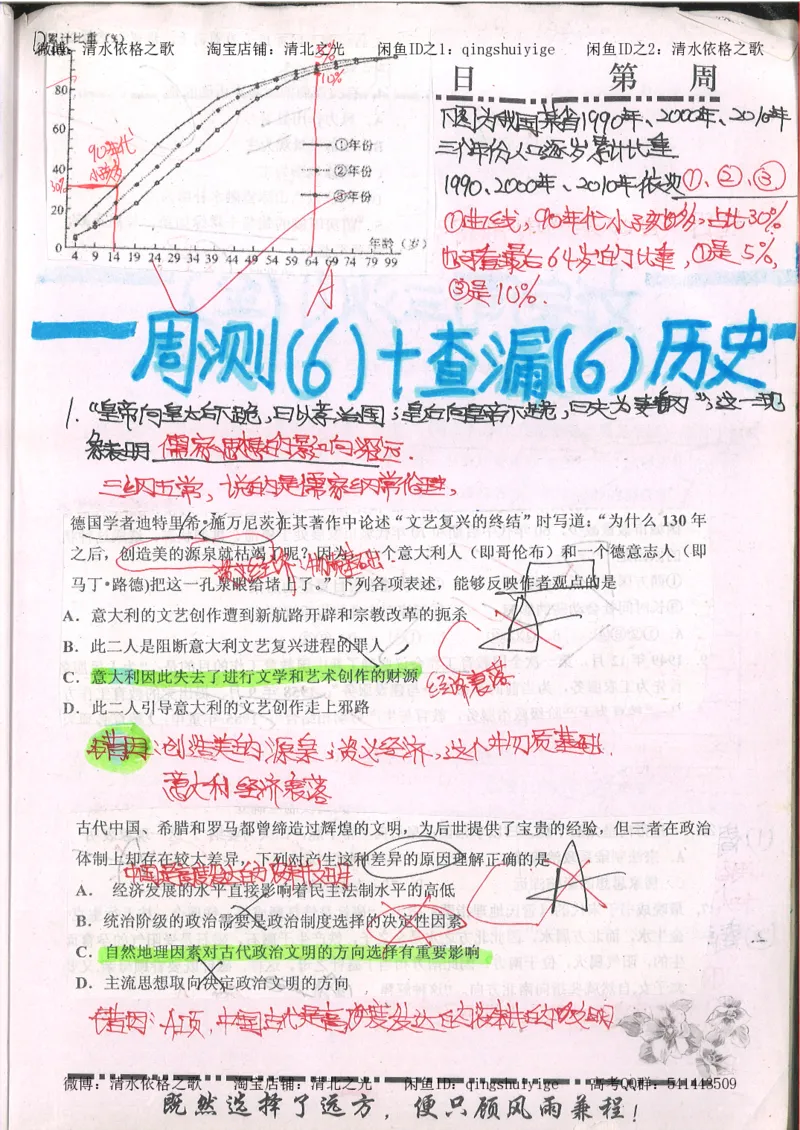 累计比重(%)
微博：清水依格之歌 淘宝店铺：清北之光 闲鱼ID之1：qingshuiyige 闲鱼ID之2：清水依格之歌
80
60
40
20
0
30%
90年代
小孩多
5%
10%
①年份
②年份
③年份
年龄（岁）
4 9 14 19 24 29 34 39 44 49 54 59 64 69 74 79 84 89 94 99
A
日 第 周
下图为我国某省1990年、2000年、2010年
三个年份人口逐岁累计比重
1990、2000年、2010年依次①、②、③
①曲线，90年代小孩 占比30%
64岁 的比重，①是5%，
③是10%．
周测(6)十查漏(6)历史
1. “皇帝向皇太后下跪，曰以孝治国；皇后向皇帝下跪，曰夫为妻纲”，这一现
象表明 儒家思想的影响深远．
三纲五常，说的是儒家纲常伦理，
德国学者迪特里希•施万尼茨在其著作中论述“文艺复兴的终结”时写道：“为什么 130 年
之后，创造美的源泉就枯竭了呢？因为，一个意大利人（即哥伦布）和一个德意志人（即
马丁•路德)把这一孔泉眼给堵上了。”下列各项表述，能够反映作者观点的是
A．意大利的文艺创作遭到新航路开辟和宗教改革的扼杀
B．此二人是阻断意大利文艺复兴进程的罪人
C．意大利因此失去了进行文学和艺术创作的财源
经济衰落
D．此二人引导意大利的文艺创作走上邪路
错因：创造美的源泉；资义经济，这个物质基础．
意大利经济衰落
古代中国、希腊和罗马都曾缔造过辉煌的文明，为后世提供了宝贵的经验，但三者在政治
体制上却存在较大差异，下列对产生这种差异的原因理解正确的是
中国是高度发达的农耕文明
A
A． 经济发展的水平直接影响着民主法制水平的高低
B．统治阶级的政治需要是政治制度选择的决定性因素
C．自然地理因素对古代政治文明的方向选择有重要影响
D．主流思想取向决定政治文明的方向
错因：A项，中国古代是高度发达的农耕的文明
微博：清水依格之歌 淘宝店铺：清北之光 闲鱼ID：qingshuiyige 高考QQ群：541443509
既然选择了远方，便只顾风雨兼程！